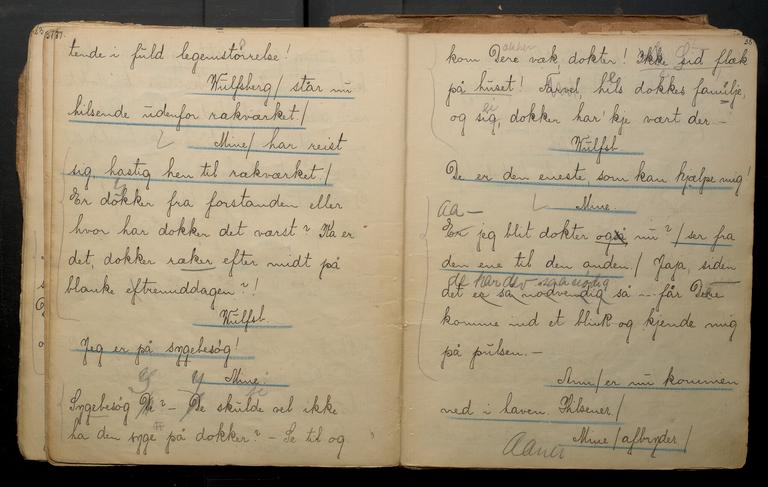 tende i fuld legemstörrelse!
Wulfsberg/ står nu
hilsende udenfor rakværket/
Mine/ har reist
sig, hastig hen til rakværket/
Er dokker fra forstanden eller
hvor har dokker det værst? Ka er
det, dokker raker efter midt på
blanke eftermiddagen?!
Wulfsb.
Jeg er på sygebesøg!
Mine.
Sygebesøg De? – De skulde vel ikke
ha den syge på dokker? – Se til og
28
kom Dere væk dokter! Ikke sid flæk
på huset! Farvel, hils dokkes familje,
og sig, dokker har' kje vært der –
Wulfsb.
De er den eneste som kan hjælpe mig!
Mine.
Aa –
Er jeg blit dokter også nu? / ser fra
den ene til den anden/ Jaja, siden
det er så nødvendig så – får Dere
komme ind et blink og kjende mig
på pulsen. –
Ann/ er nu kommen
ned i haven. Hilsener/
Mine/ afbryder/